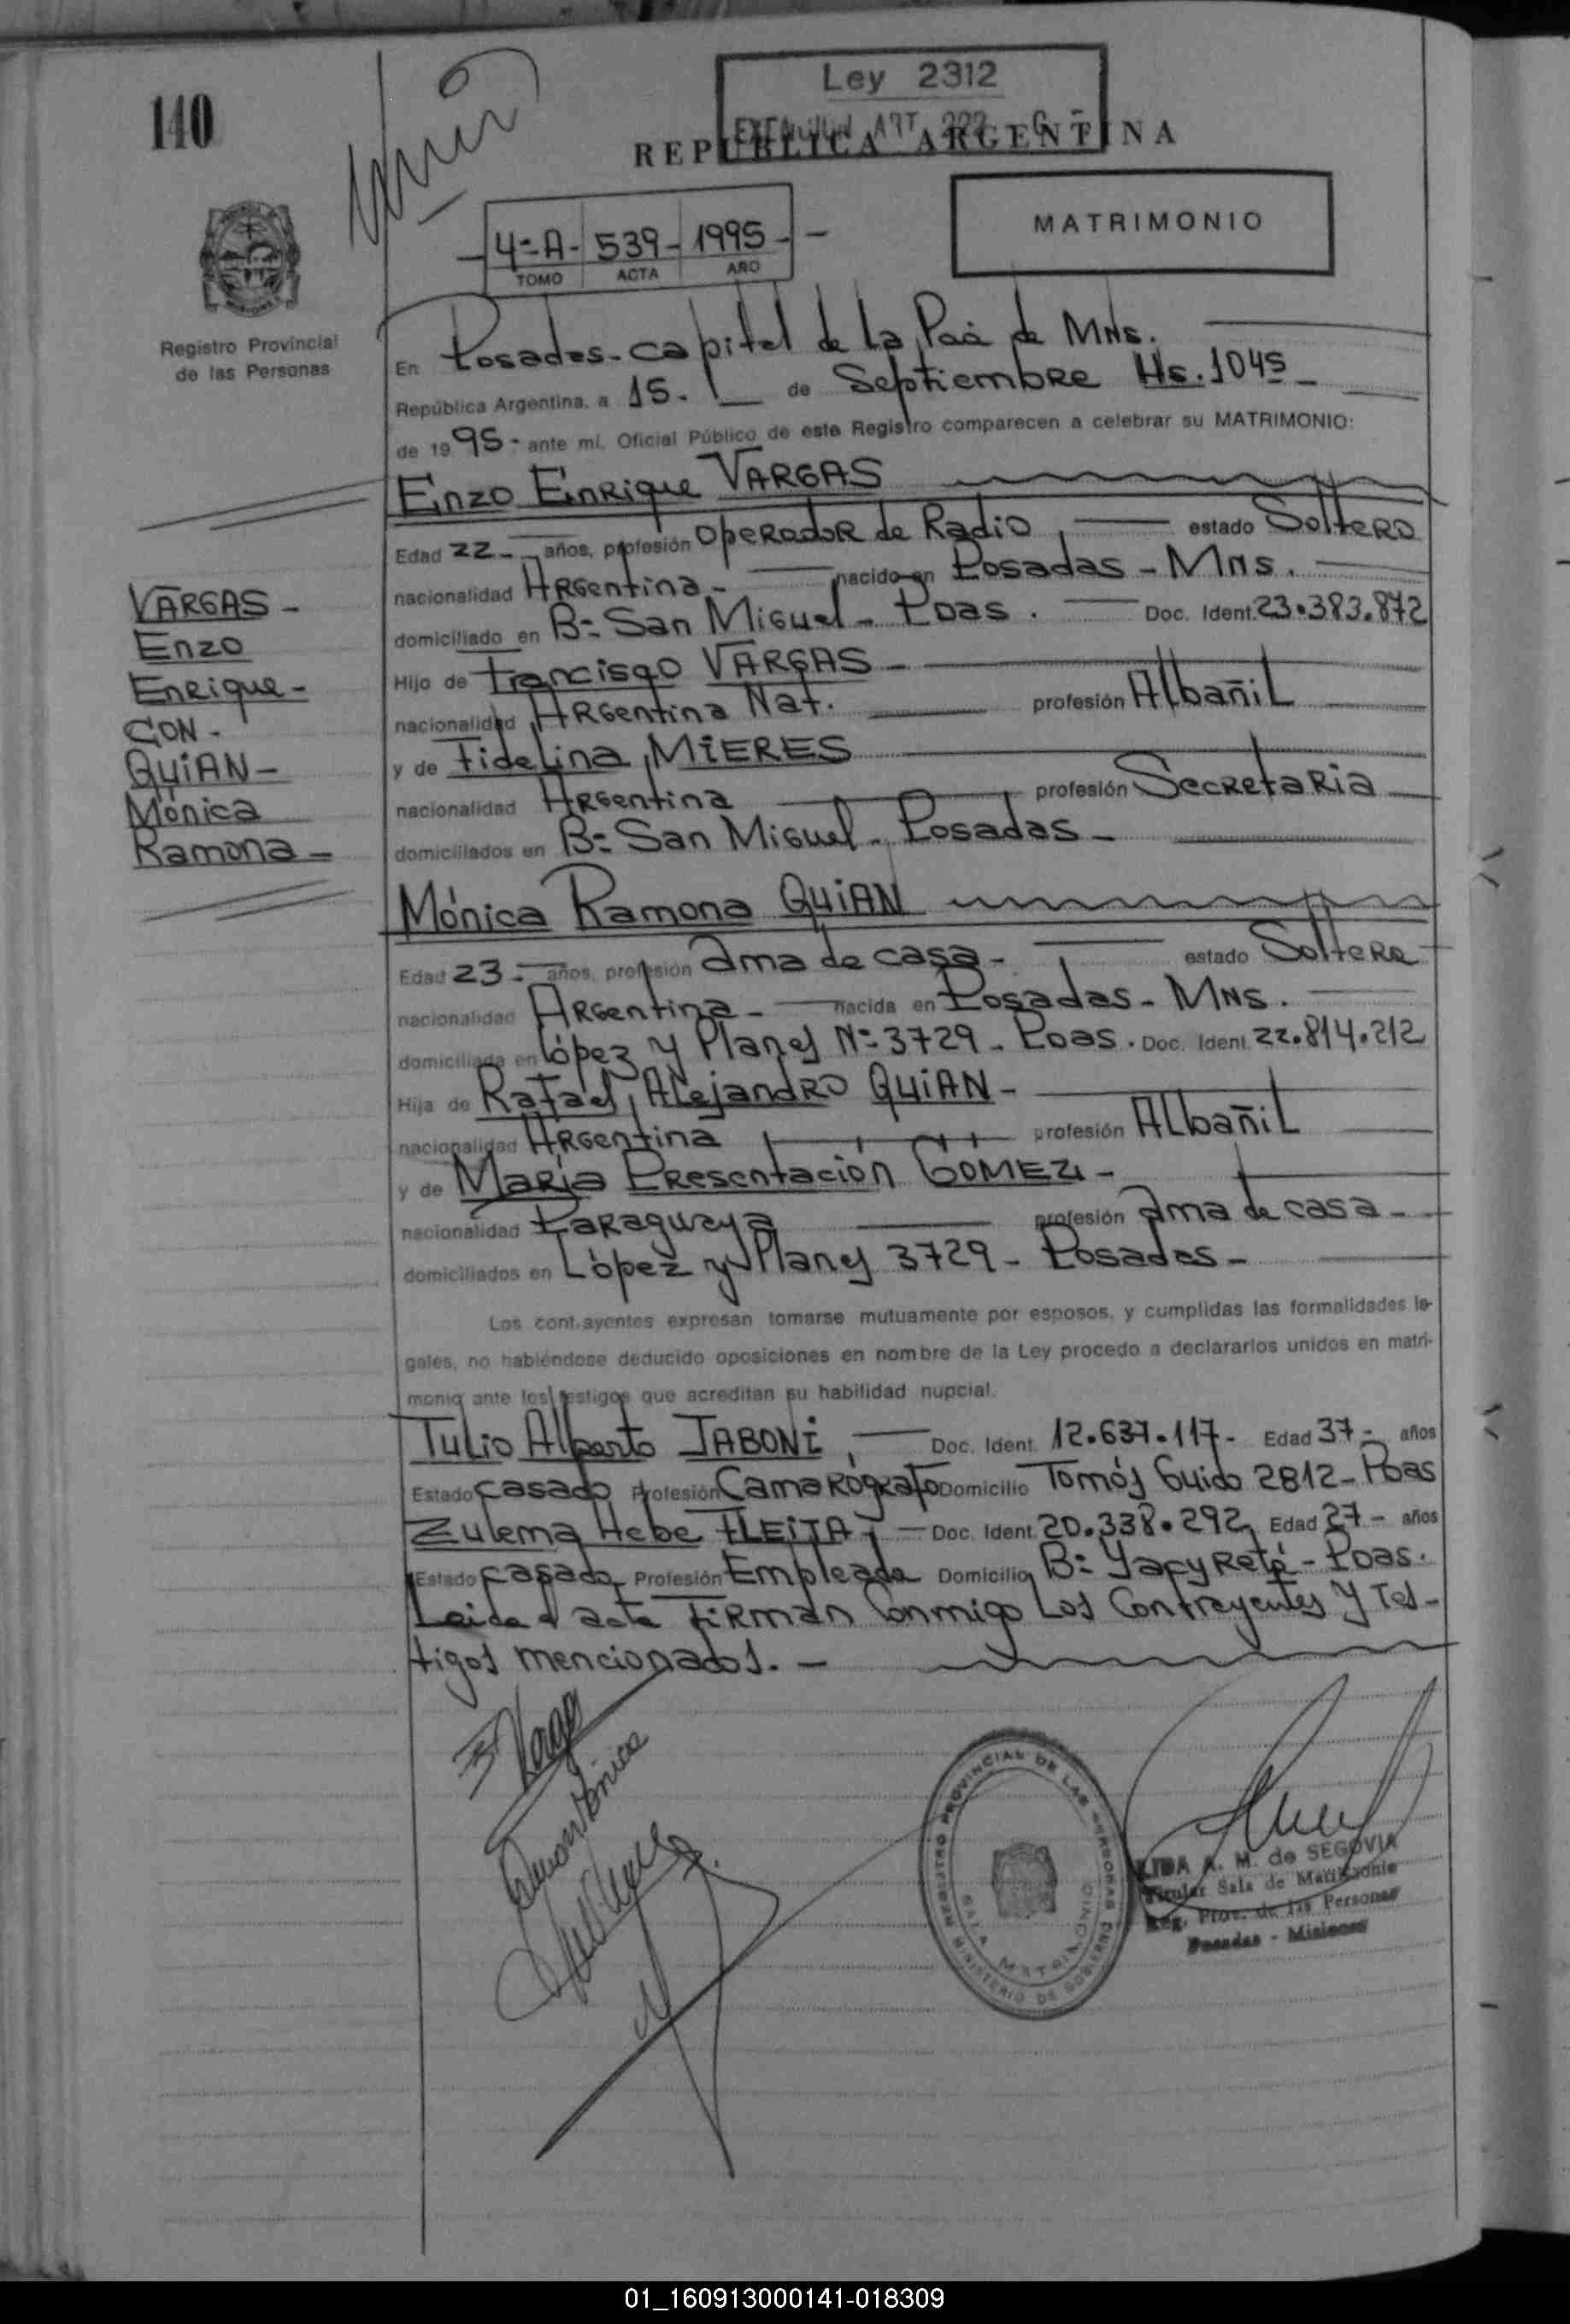 140
Ley 2312
REPUBLICA ARGENTINA
MATRIMONIO
4º-A- 539- 1995-
TOMO ACTA AÑO
Registro Provincial
de las Personas
En Posadas-capital de la Pcia de Mns.
República Argentina, a 15. de Septiembre Hs. 1045
de 1995- ante mí, Oficial Público de este Registro comparecen a celebrar su MATRIMONIO:
Enzo Enrique VARGAS
Edad 22- años, profesión Operador de Radio, estado Soltero
nacionalidad Argentina- nacido en Posadas - Mns.
domiciliado en B= San Miguel - Pdas. Doc. Ident. 23.383.872
Hijo de Francisco VARGAS -
nacionalidad Argentina Nat. profesión Albañil
y de Fidelina MIERES
nacionalidad Argentina profesión Secretaria
domiciliados en B= San Miguel - Posadas -
VARGAS -
Enzo
Enrique -
CON -
QUIAN -
Mónica
Ramona -
Mónica Ramona QUIAN
Edad 23- años, profesión Ama de casa - estado Soltera
nacionalidad Argentina - nacida en Posadas - Mns.
domiciliada en López y Planes Nº 3729 - Pdas. Doc. Ident. 22.814.212
Hija de Rafael Alejandro QUIAN -
nacionalidad Argentina profesión Albañil
y de María Presentación GÓMEZ -
nacionalidad Paraguaya profesión Ama de casa -
domiciliados en López y Planes 3729 - Posadas -
Los contrayentes expresan tomarse mutuamente por esposos, y cumplidas las formalidades le-
gales, no habiéndose deducido oposiciones en nombre de la Ley procedo a declararlos unidos en matri-
monio ante los testigos que acreditan su habilidad nupcial.
Tulio Alberto JABONI, Doc. Ident. 12.637.117- Edad 37- años
Estado Casado Profesión Camarógrafo Domicilio Tomás Guido 2812 - Pdas
Zulema Hebe FLEITA, Doc. Ident. 20.338.292, Edad 27- años
Estado Casada Profesión Empleada Domicilio B= Yacyretá - Pdas.
Leida el acta firman conmigo los Contrayentes y Tes-
tigos mencionados. -
REGISTRO PROVINCIAL DE LAS PERSONAS
SALA MATRIMONIO
MINISTERIO DE GOBIERNO
LIDA A. M. de SEGOVIA
Titular Sala de Matrimonio
Reg. Prov. de las Personas
Posadas - Misiones
01_160913000141-018309